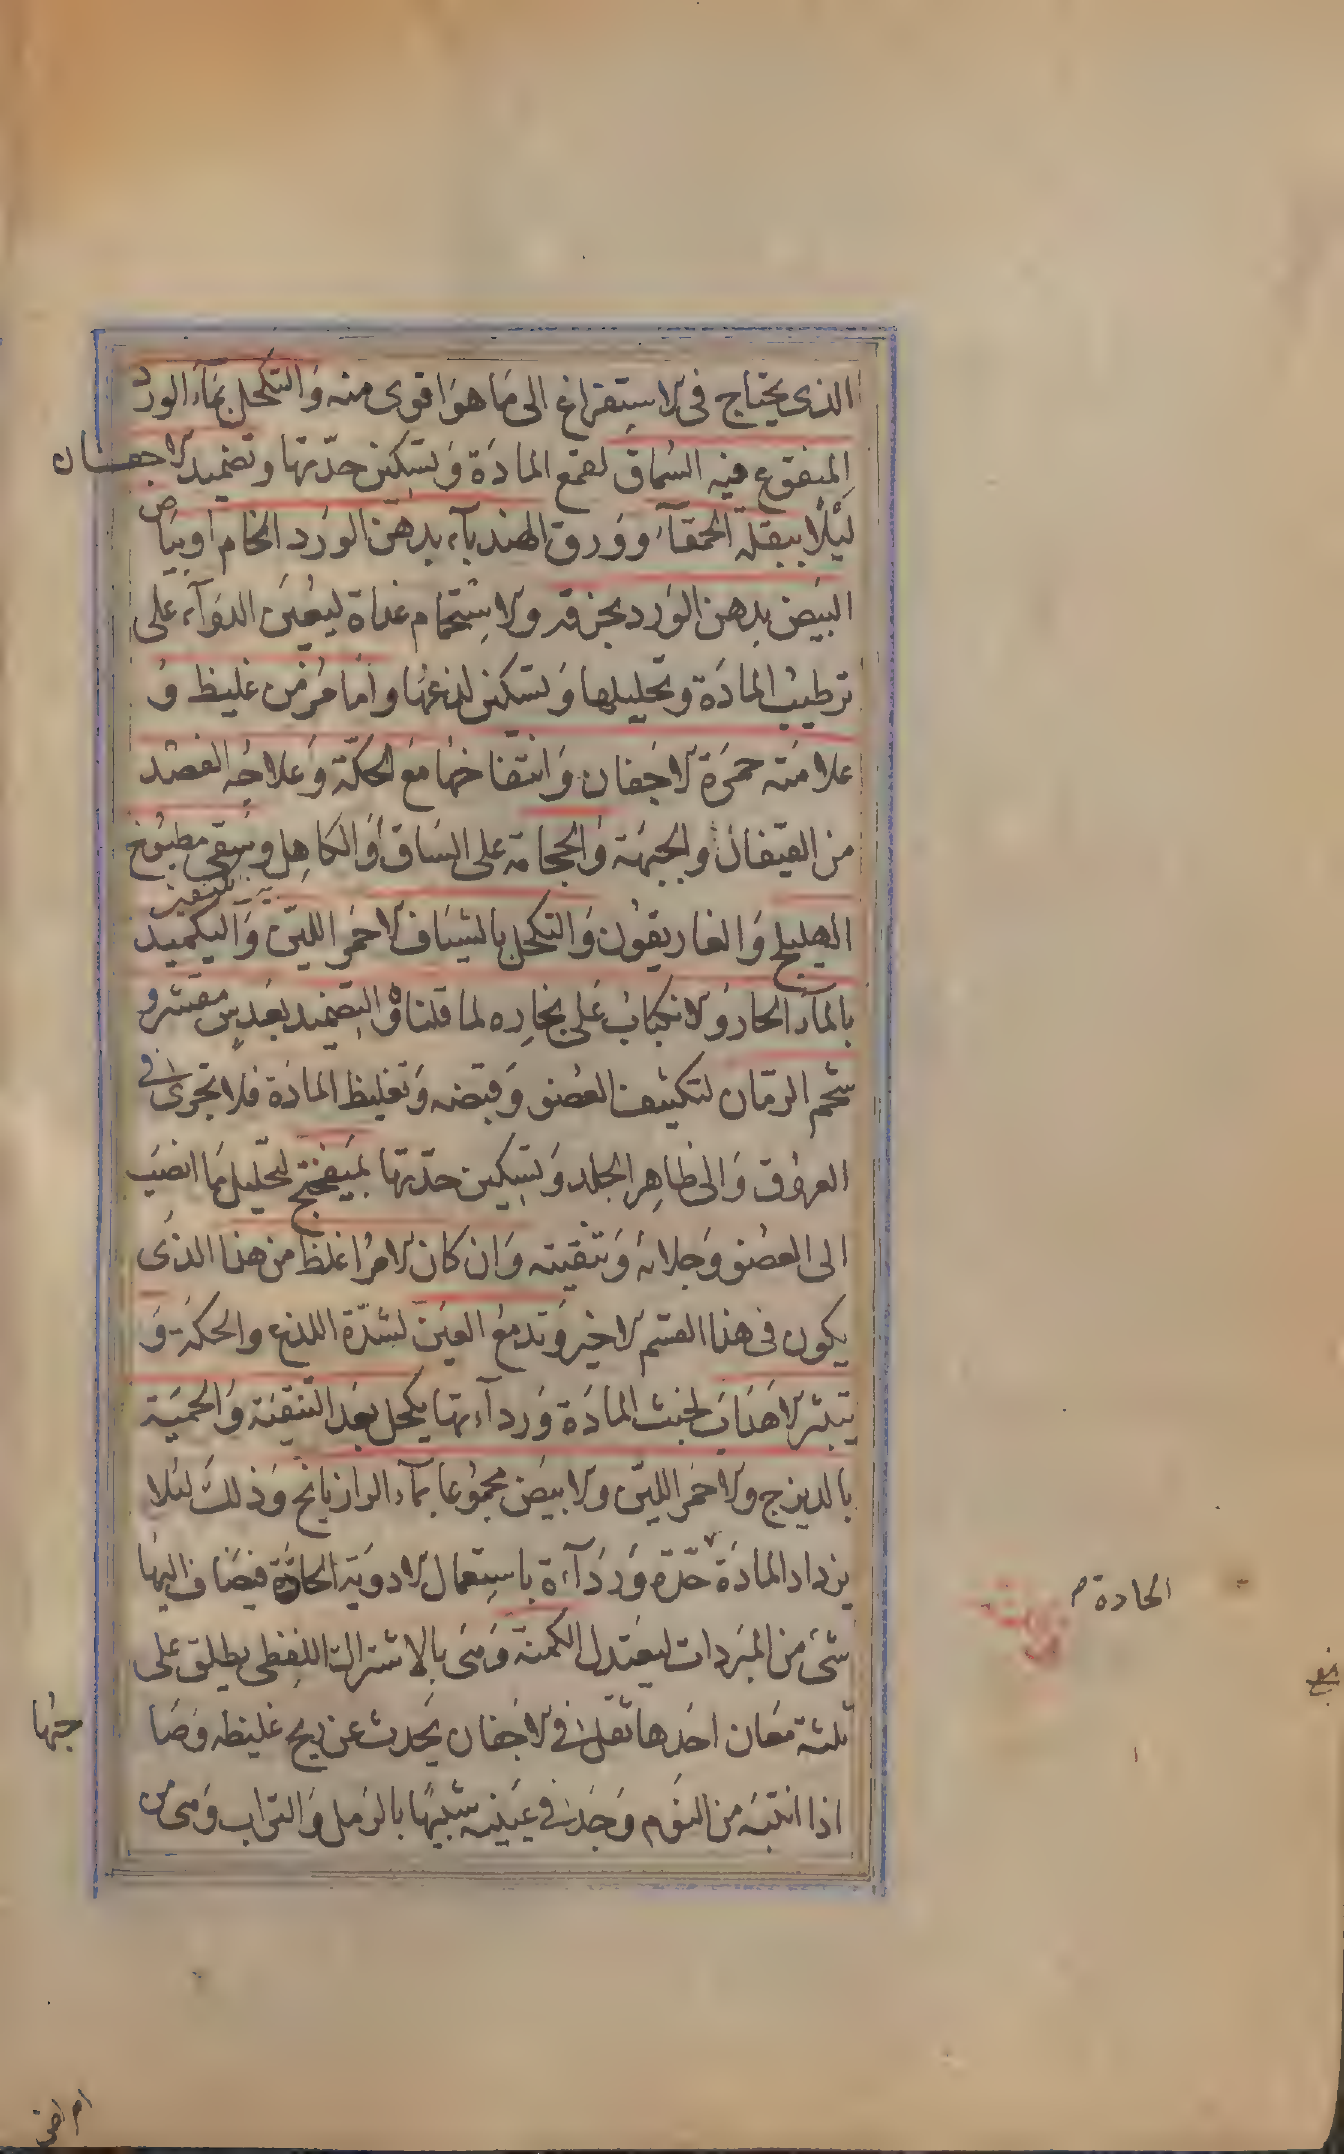 الذى يحتاج فى الاستفراغ الى مَا هوَ اقوى منه وَ التكحل بمآء الورد
المنقوع فيه السُماق لقمع المادَة وَ تسكين حدّتها و تضميد الاجفان
ليْلاً ببقلة الحمقآء و وَرق الهندبآء بدهن الوَرد الخام او بيَاض
البيَض بدهن الوَرد بخرقه و الاستحمام غداة ليعيَن الدوَآء على
ترطيب المادَة و تحليلها وَ تسكين لذعهُا و امَا مُزمن غليظ وَ
علامَته حمرَة الاجَفان وَ انتفاخهُا مَع الحكّة وَ علاجُه الفصْد
من القيفال و الجبهَة وَ الحجامة على السَاق أوَ الكاهِل و سَقى مطبُوخ
الهليلج وَ الغاريقوُن وَ التكحل بالشيَاف الاحمَر الليّن وَ التكميد
بالمآء الحار وَ الانكبابُ عَلى بخارِه لما قلناهُ وَ التضميد بعَدسٍ مقشر و
شحم الرمّان لتكثيف العُضو وَ قبضه وَ تغليظ المادَة فلا تجرىَ فى
العرُوق وَ الى ظاهِر الجلد وَ تسكين حدّتها بميَفختج لتحليل مَا انصَبّ
الى العضُو وَ جلائه وَ تنقيته وَ ان كان الامرُ اغلظ من هذا الذىُ
يكون فى هذا القسَم الاخير وَ تدمَعُ العيَن لشدّة اللذع و الحكَة وَ
يَنتثر الاهَدَاب لخبث المادَة وَ ردآءتها يكحل بعَد التنقيَة وَ الحميَة
بالديزج و الاحمَر الليّن و الابيَض مجموُعا بمآء الرازيانج وَ ذلكَ لئلا
يزداد المادَة حّدة وَ ردَآءة باستِعمال الادويَة الحادّة فيضَاف اليهُا
شئ من المبَردات ليعَتدل الكمنَة وَ هىَ بالاشتراك اللفِظى يطلق على
ثلثة معَان احَدها ثقل فى الاجَفان يحَدث عن ريح غليظه وَ صَا
جبهُا
اذا انتبَه من النوَم وَجَد فى عيَنيه شبيهًا بالرَمل وَ التراب وَ هى من
الحادة
امراض